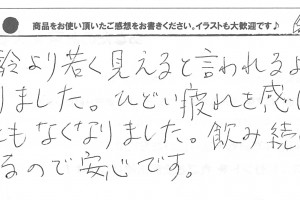 商品をお使い頂いたご感想をお書きください。イラストも大歓迎です♪
齢より若く見えると言われるよ
りました。ひどい疲れを感じ
ともなくなりました。飲み続
るので安心です。